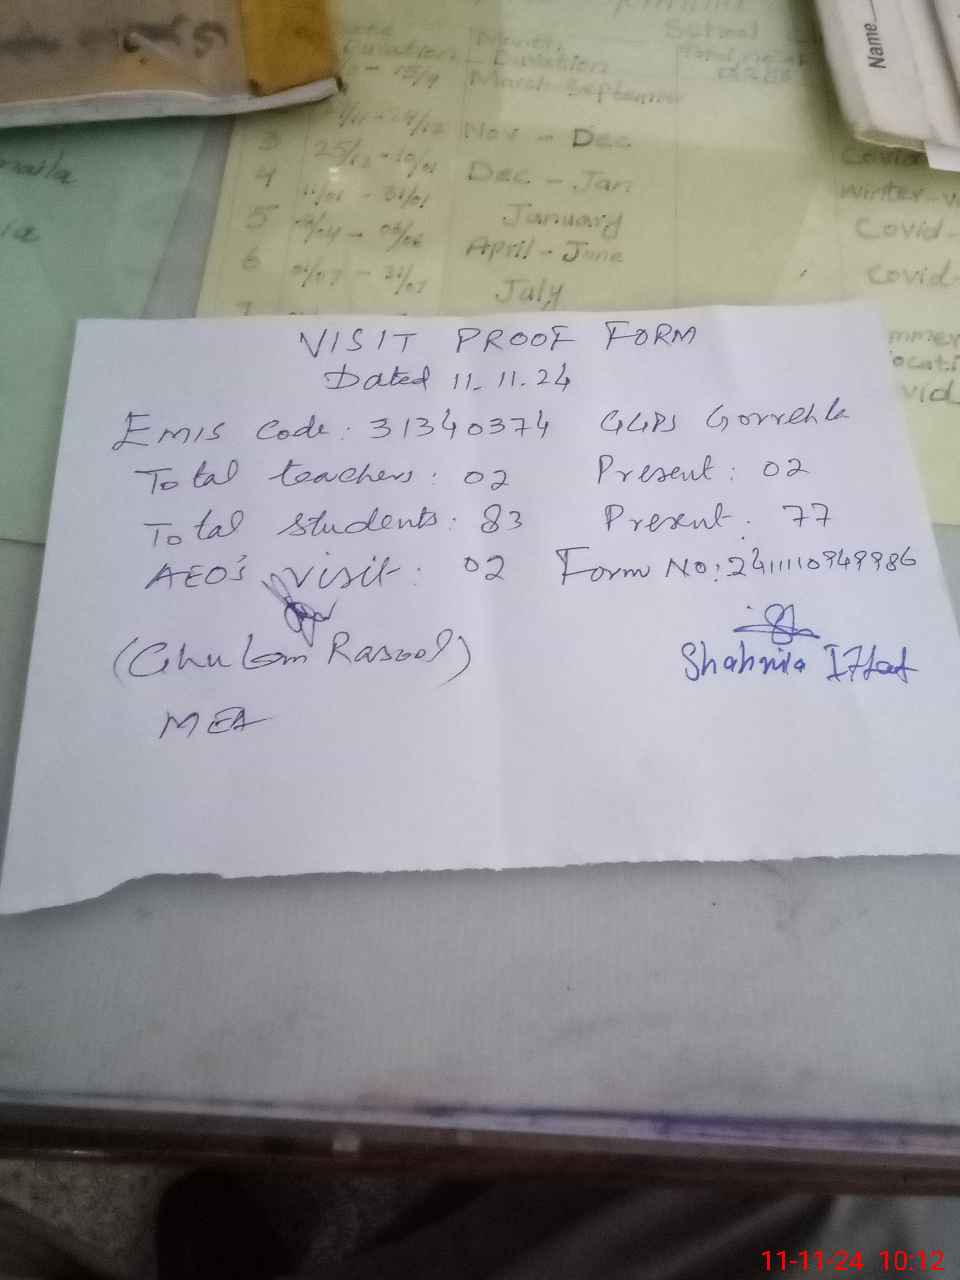 Name
School
Duration
Duration
- 15/9 March-September
3 24/12 Nov - Dec
4 25/12 - 10/01 Dec - Jan
5 11/01 - 31/01 January
6 - 06/06 April - June
- 31/07 July
Covid
winter-v
Covid-
Covid-
mmer
ocati
vid
VISIT PROOF FORM
Dated 11.11.24
EMIS Code: 31340374 GGPS Gorrehla
Total teachers: 02 Present: 02
Total students: 83 Present: 77
AEO's visit: 02 Form No: 2411110949986
(Ghulam Rasool)
Shahnila Iffat
MEA
11-11-24 10:12